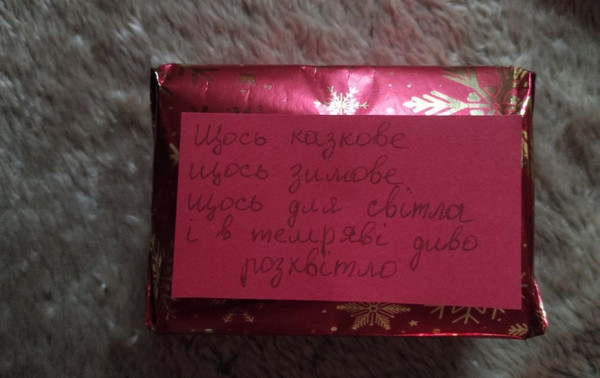 Щось казкове
щось зимове
щось для світла
і в темряві диво
розквітло